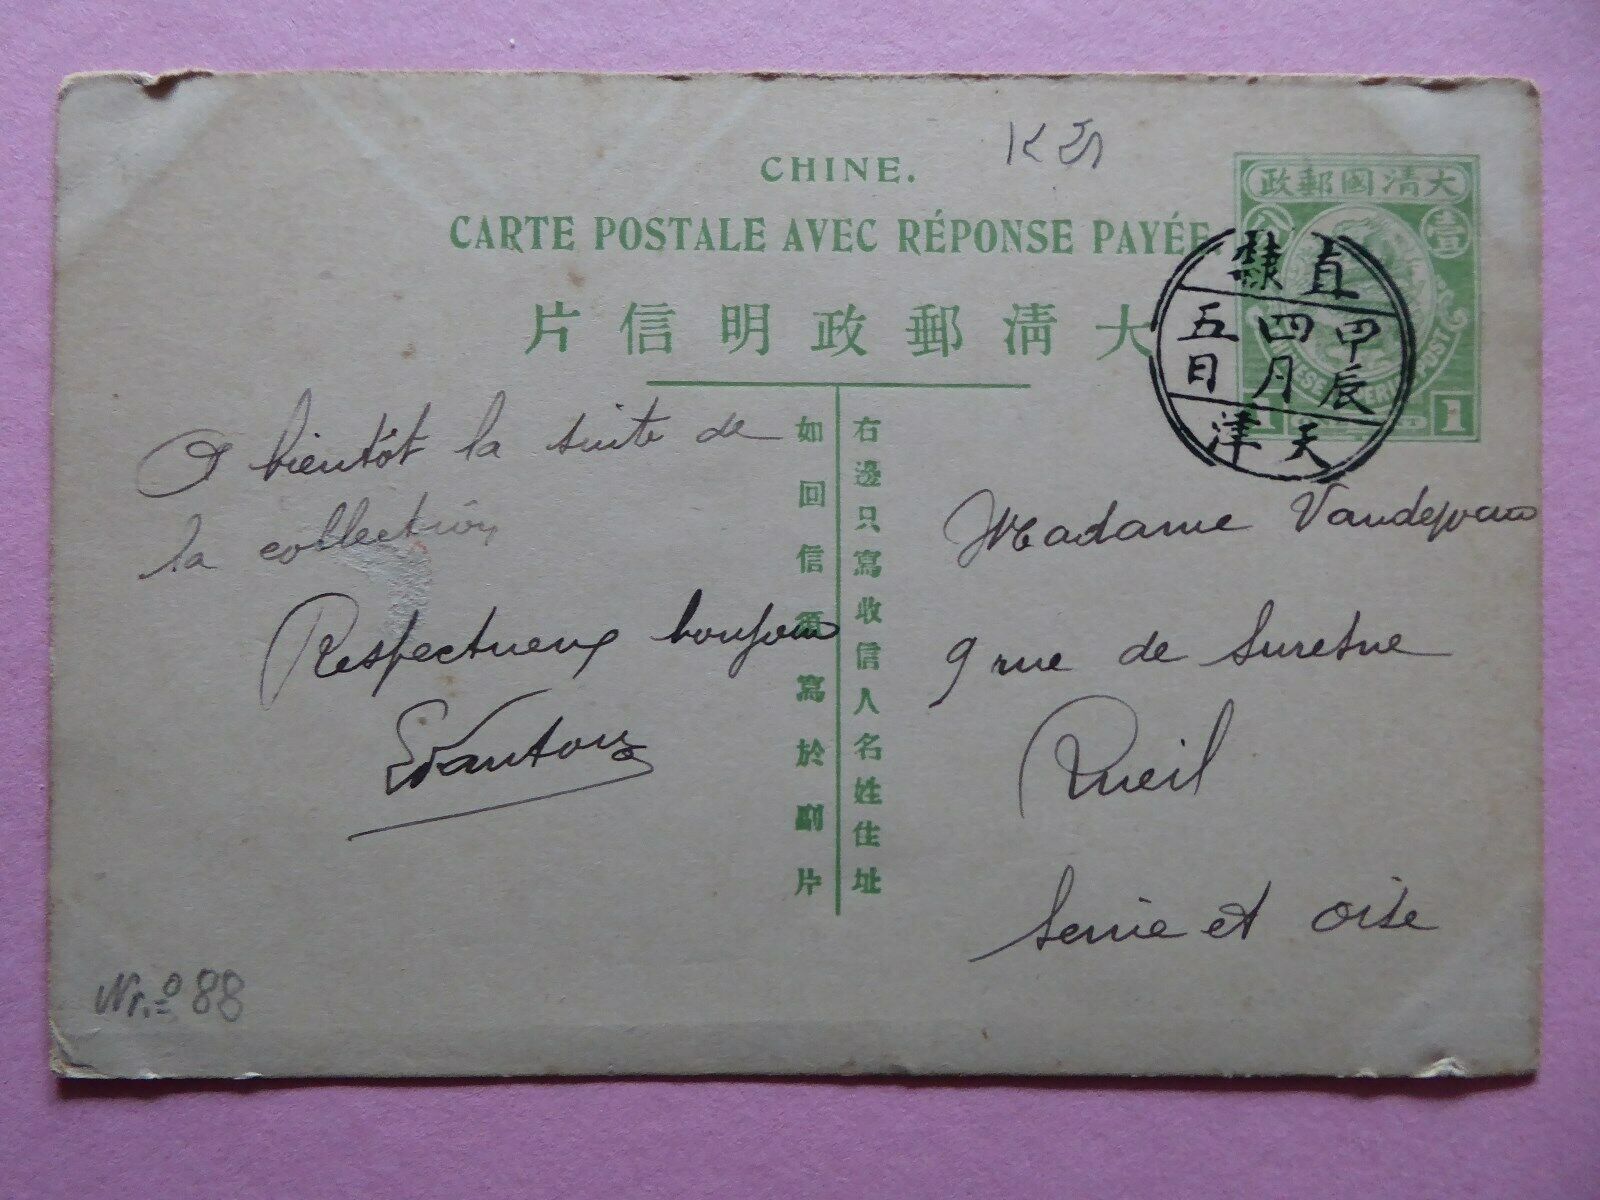 CHINE.
CARTE POSTALE AVEC RÉPONSE PAYÉE
大清郵政明信片
大清國郵政
壹
分
CHINESE IMPERIAL POST
1
1
直隸
甲辰
四月
五日
天津
右邊只寫收信人名姓住址
如回信須寫於副片
A bientôt la suite de
la collection
Respectueux bonjour
Madame
9 rue de Suresne
Rueil
Seine et Oise
Nr.o 88